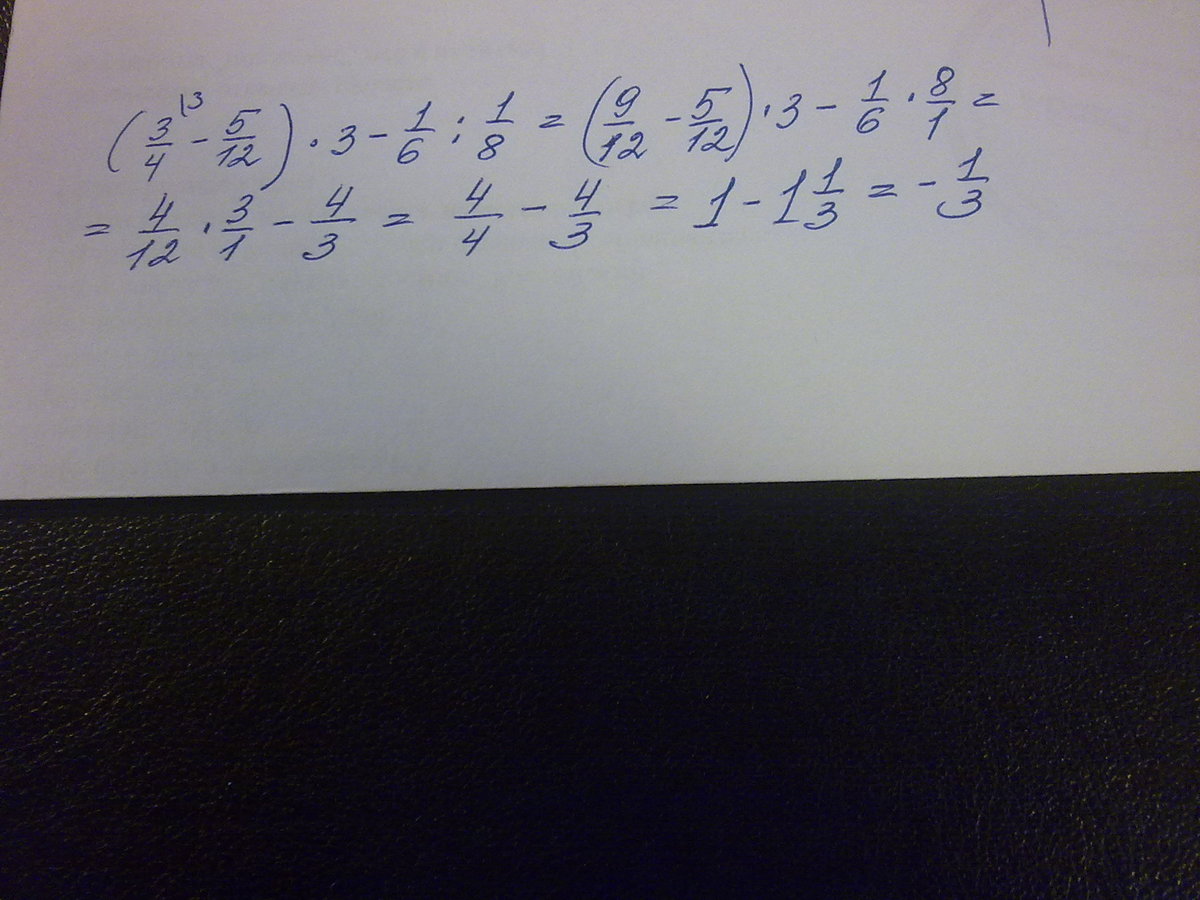 (3/4^|3 - 5/12) · 3 - 1/6 : 1/8 = (9/12 - 5/12) · 3 - 1/6 · 8/1 =
= 4/12 · 3/1 - 4/3 = 4/4 - 4/3 = 1 - 1 1/3 = - 1/3